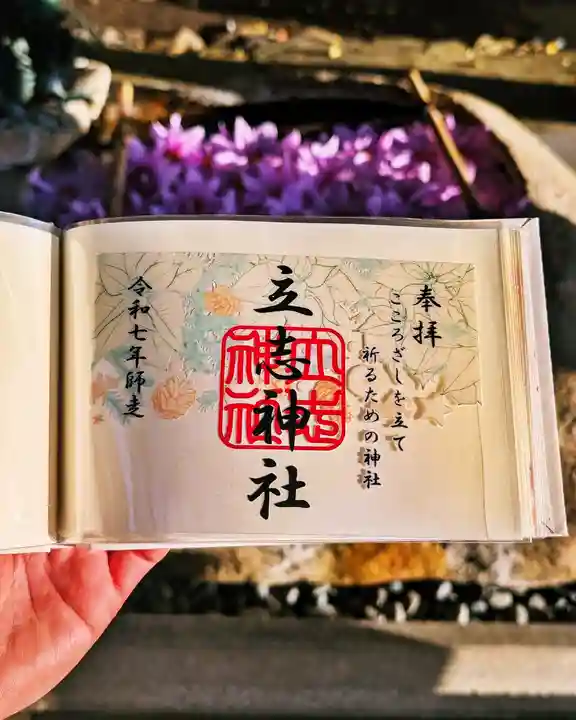 奉拝
こころざしを立て
祈るための神社
立志神社
立志神社
令和七年師走